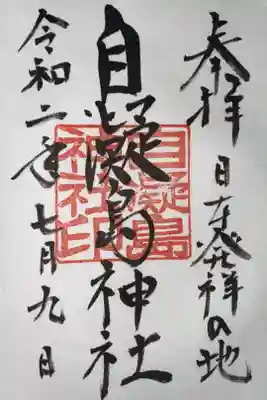 奉拝 日本発祥の地
自凝島神社
自凝島神社印
令和二年七月九日